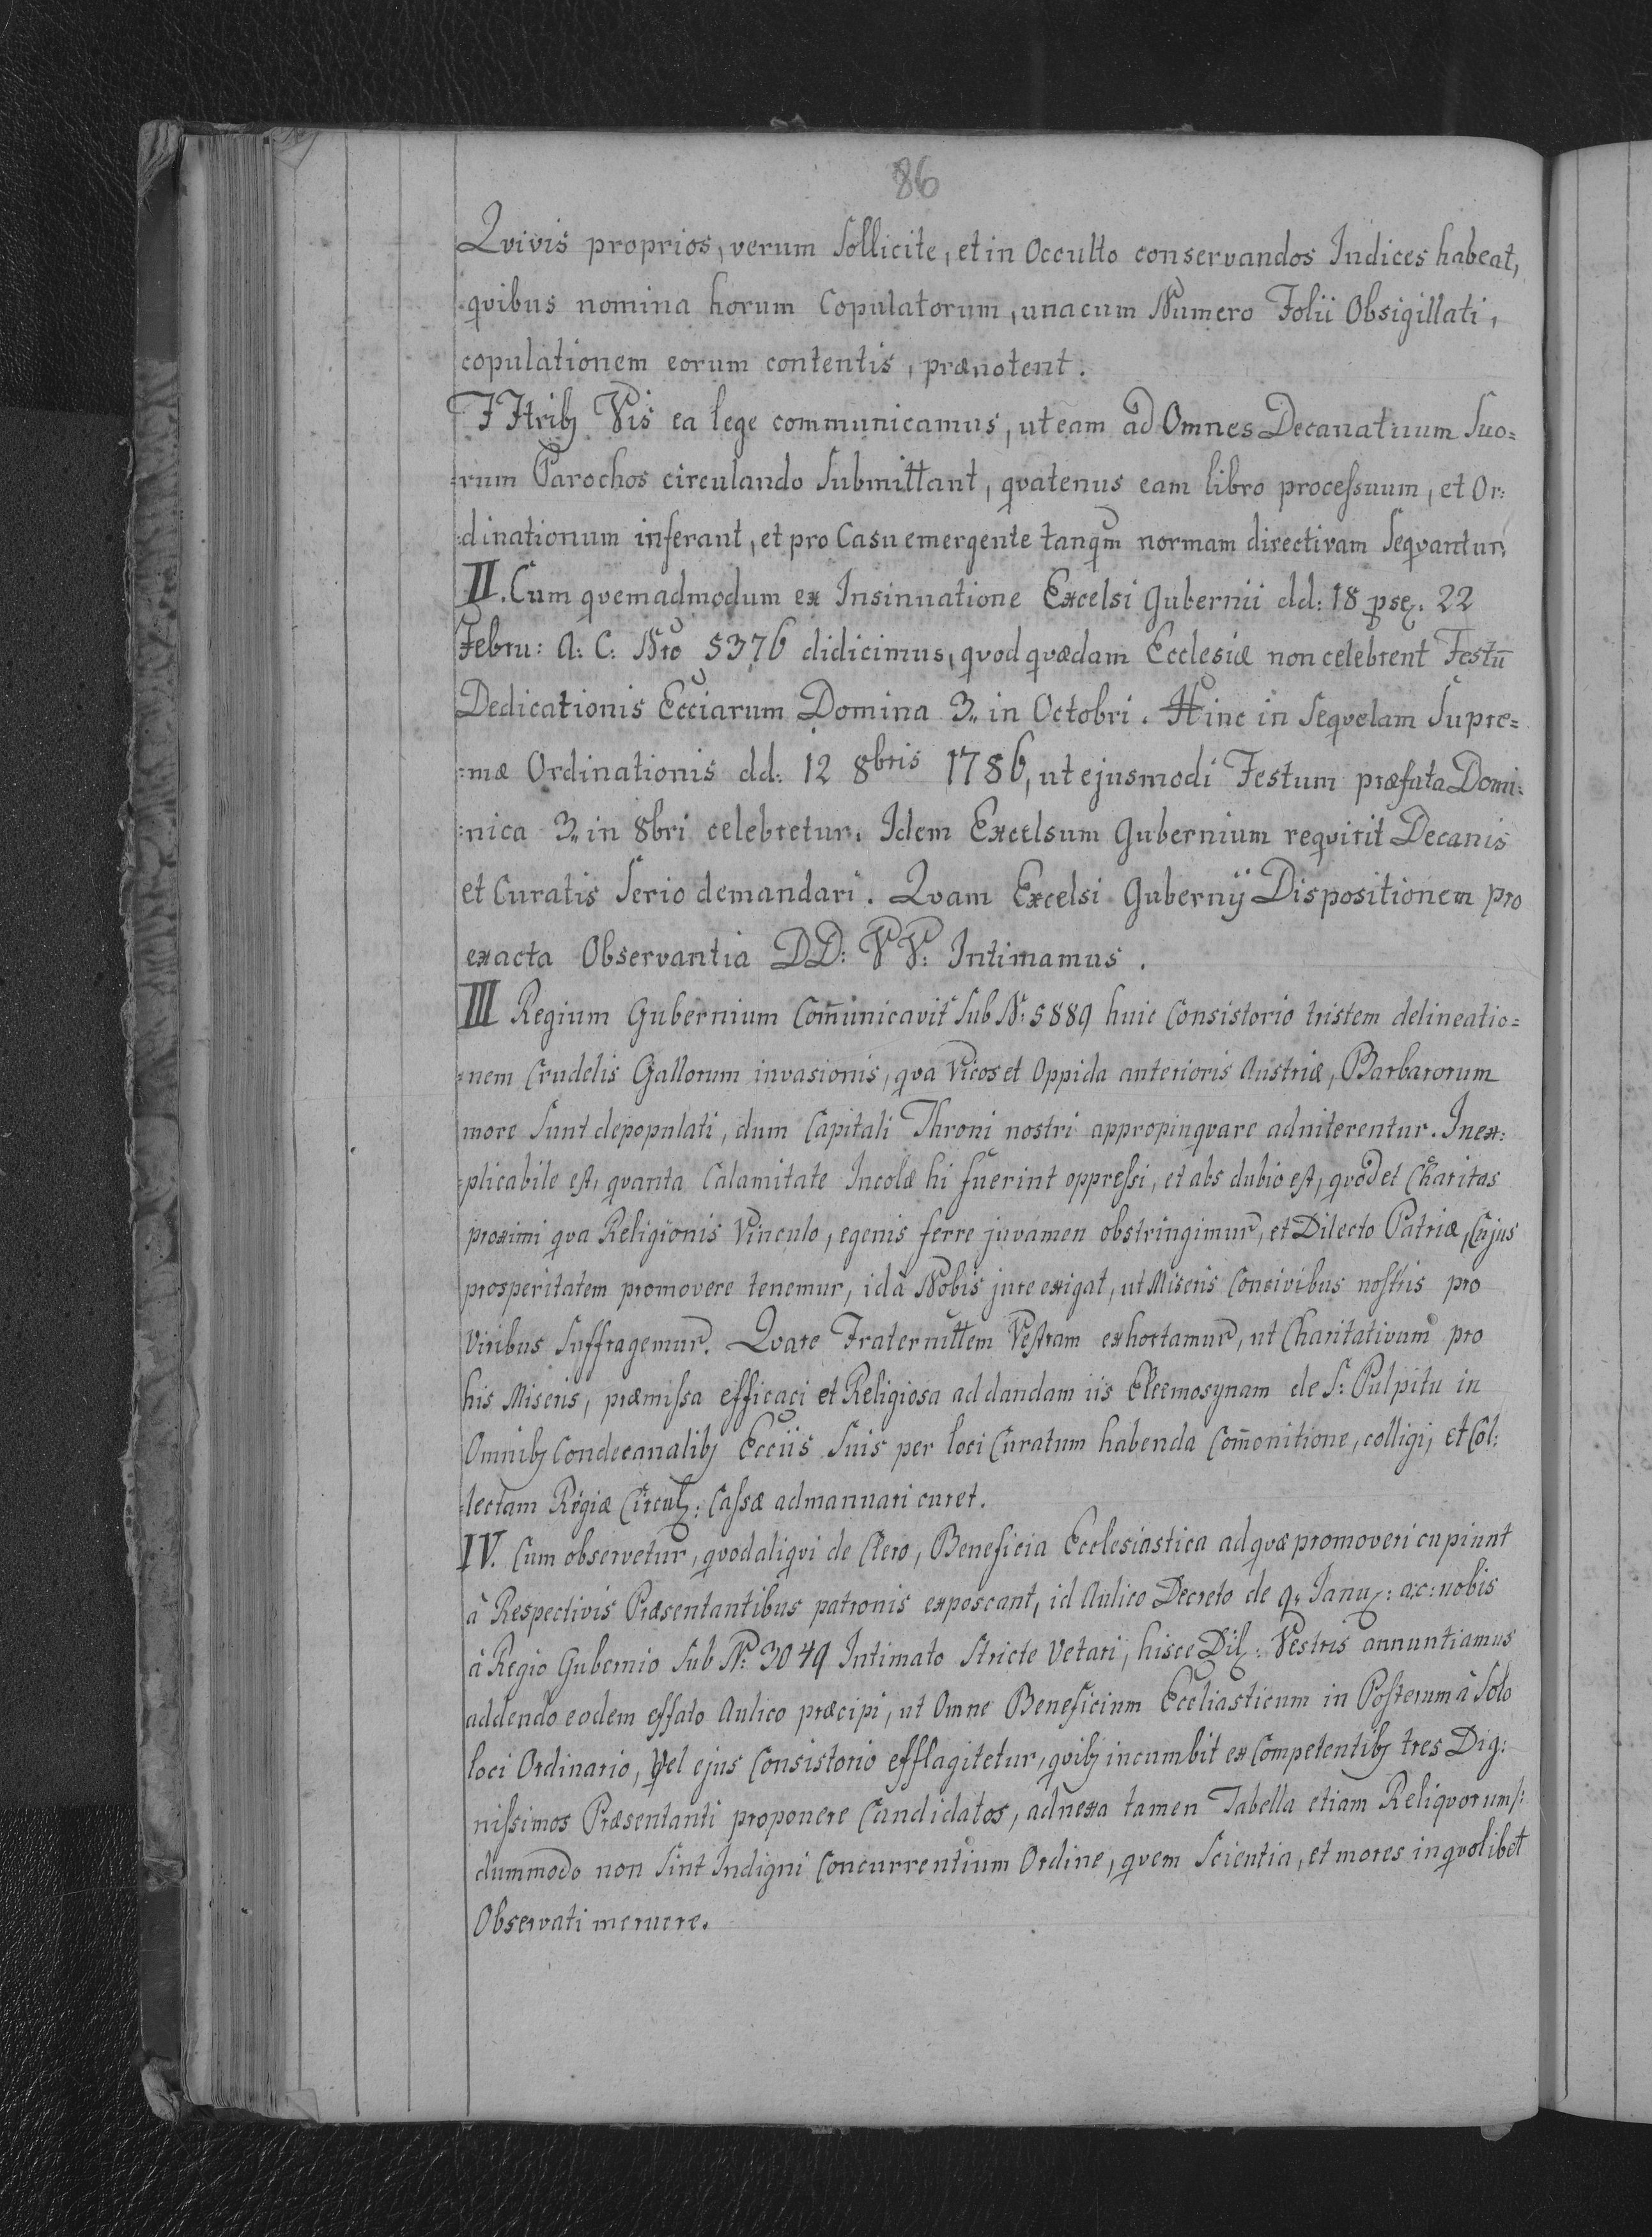 86
Qvivis proprios, verum sollicite, et in Occulto conservandos Indices habeat,
qvibus nomina horum Copulatorum, unacum Numero Folii Obsigillati,
copulationem eorum contentis, prænotent.
FFtribȝ Vis ea lege communicamus, ut eam ad Omnes Decanatuum suo=
=rum Parochos circulando submittant, qvatenus eam libro processuum, et Or:
:dinationum inferant, et pro Casu emergente tanqm normam directivam seqvantur.
II. Cum qvemadmodum ex Insinuatione Excelsi Gubernii dd: 18 pse. 22
Febru: A: C: Nro 5376 didicimus, qvod qvædam Ecclesiæ non celebrent Festū
Dedicationis Ecciarum Domina 3„ in Octobri. Hinc in seqvelam supre=
=mæ Ordinationis dd: 12 8bris 1786, ut ejusmodi Festum præfata Domi:
:nica 3„ in 8bri celebretur. Idem Excelsum Gubernium reqvirit Decanis
et Curatis serio demandari. Qvam Excelsi Gubernÿ Dispositionem pro
exacta Observantia DD: VV: Intimamus.
III Regium Gubernium Com̄unicavit sub N: 5889 huic Consistorio tristem delineatio=
=nem Crudelis Gallorum invasionis, qva Vicos et Oppida anterioris Austriæ, Barbarorum
more sunt depopulati, dum Capitali Throni nostri appropinqvare adniterentur. Inex:
:plicabile est, qvanta Calamitate Incolæ hi fuerint oppressi, et abs dubio est, qvod et Charitas
proximi qva Religionis Vinculo, egenis ferre juvamen obstringimur, et Dilecto Patriæ, Cujus
prosperitatem promovere tenemur, id à Nobis jure exigat, ut Miseris Concivibus nostris pro
Viribus suffragemur. Qvare Fraternittem Vestram exhortamur, ut Charitativum pro
his Miseris, præmissa efficaci et Religiosa ad dandam iis Eleemosynam de S: Pulpitu in
Omnibȝ Condecanalibȝ Ecciis suis per loci Curatum habenda Com̄onitione, colligi, et Col:
:lectam Regiæ Circul: Cassæ admanuari curet.
IV. Cum observetur, qvod aliqvi de Clero, Beneficia Ecclesiastica ad qvæ promoveri cupiunt
à Respectivis Præsentantibus patronis exposcant, id Aulico Decreto de 9. Janu: a:c: nobis
à Regio Gubernio sub N: 3049 Intimato stricte Vetari, hisce Dil: Vestris annuntiamus
addendo eodem effato Aulico præcipi, ut Omne Beneficium Eccliasticum in Posterum à solo
loci Ordinario, Vel ejus Consistorio efflagitetur, qvibȝ incumbit ex Competentibȝ tres Dig:
nissimos Præsentanti proponere Candidatos, adnexa tamen Tabella etiam Reliqvorum /:
dummodo non sint Indigni Concurrentium Ordine, qvem Scientia, et mores in qvolibet
Observati meruere.